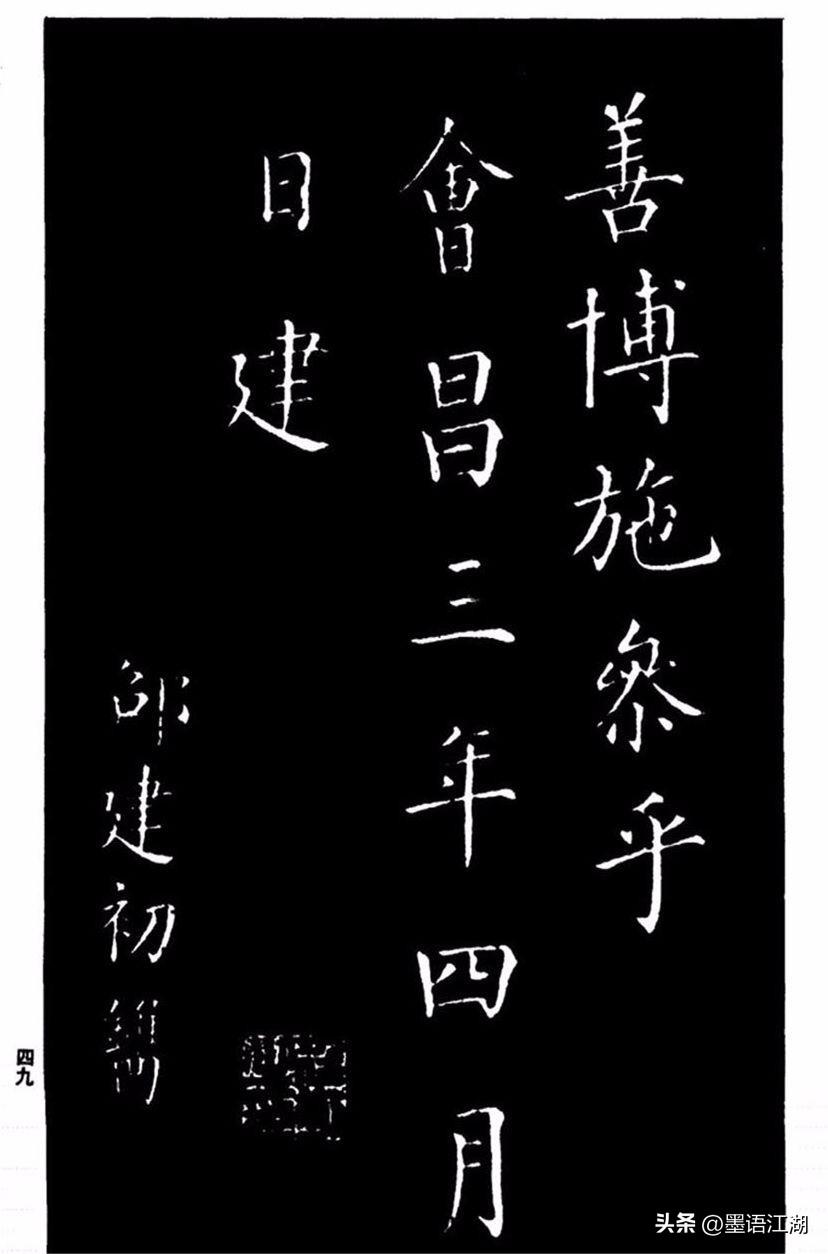 善博施叅乎
會昌三年四月
日建
邵建初鐫
四九
头条 @墨语江湖